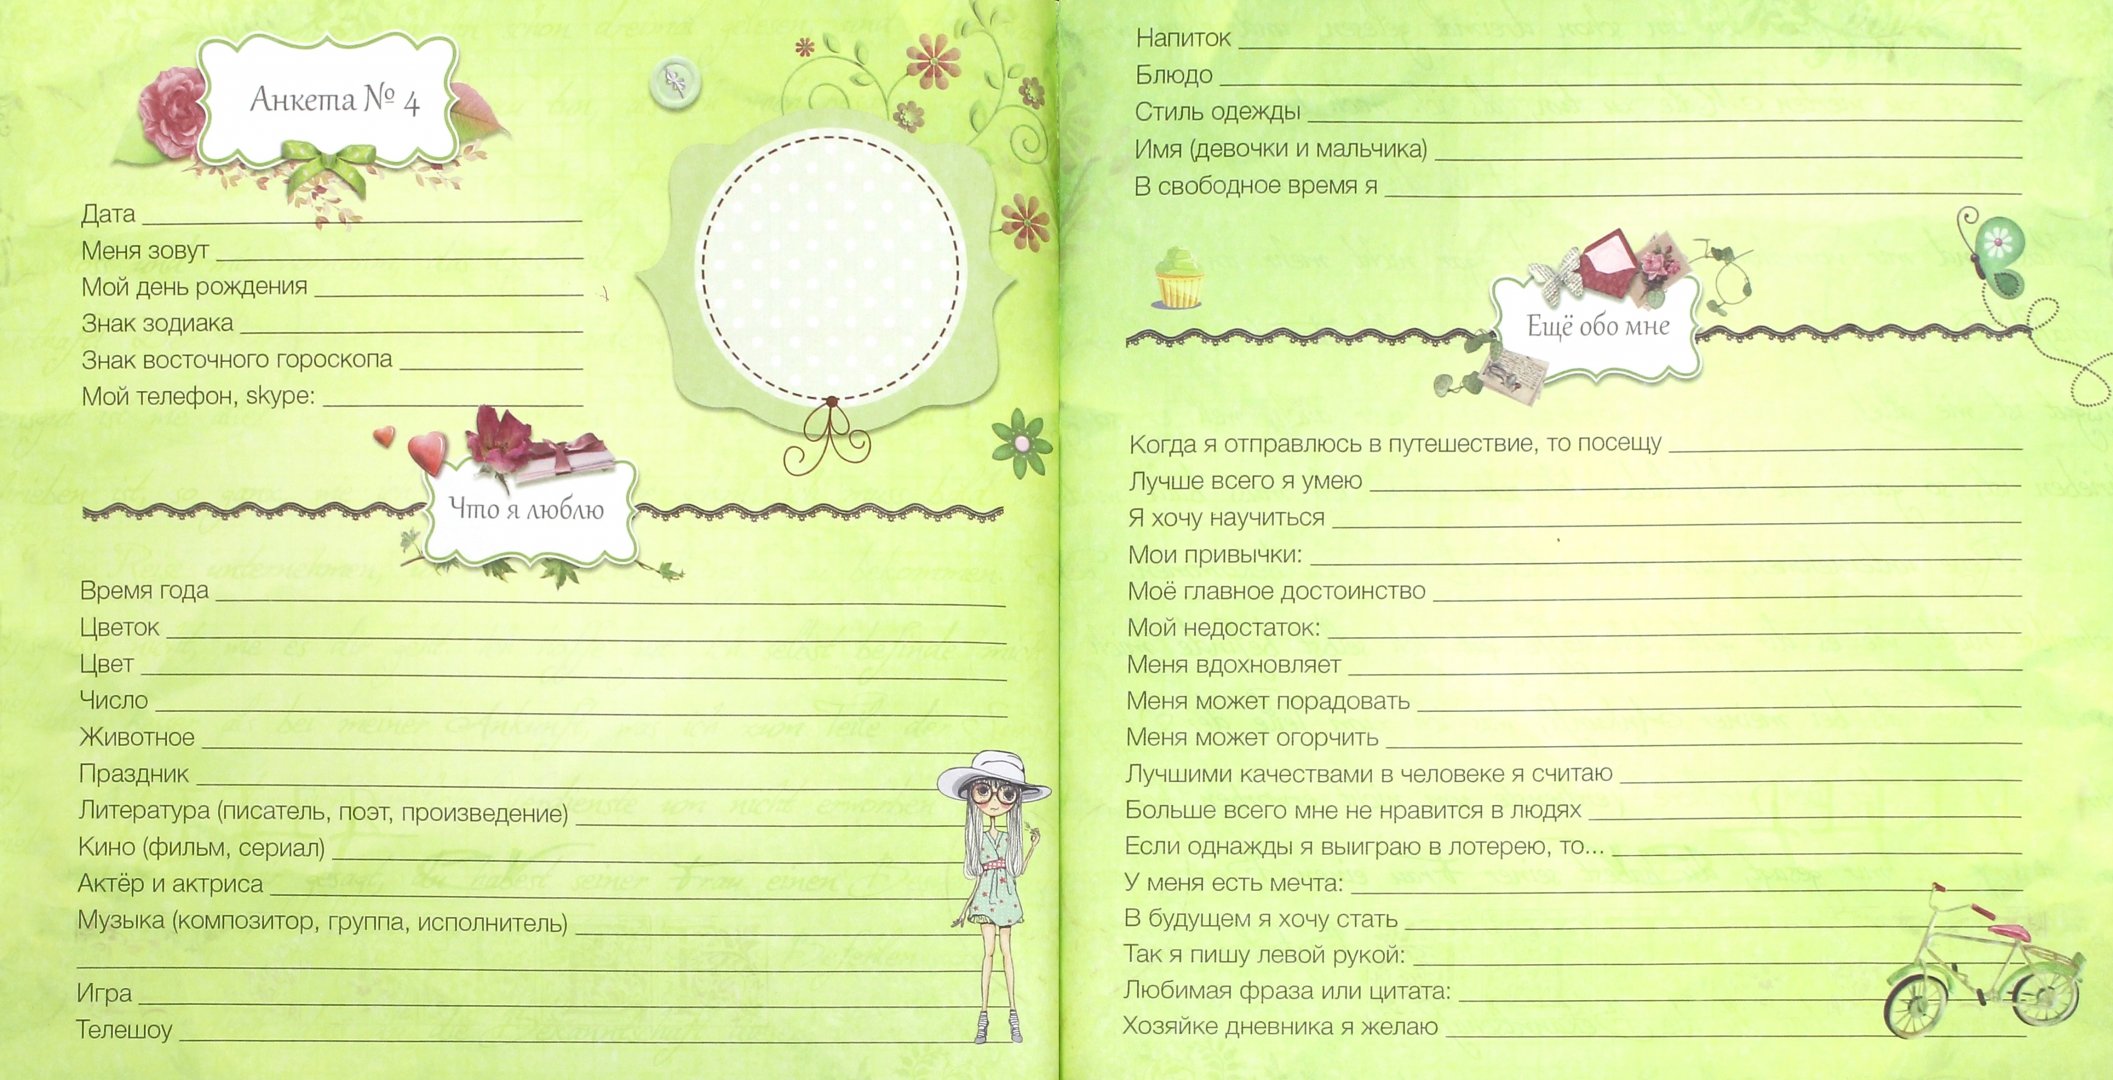 Анкета № 4
Дата
Меня зовут
Мой день рождения
Знак зодиака
Знак восточного гороскопа
Мой телефон, skype:
Что я люблю
Время года
Цветок
Цвет
Число
Животное
Праздник
Литература (писатель, поэт, произведение)
Кино (фильм, сериал)
Актёр и актриса
Музыка (композитор, группа, исполнитель)
Игра
Телешоу
Напиток
Блюдо
Стиль одежды
Имя (девочки и мальчика)
В свободное время я
Ещё обо мне
Когда я отправлюсь в путешествие, то посещу
Лучше всего я умею
Я хочу научиться
Мои привычки:
Моё главное достоинство
Мой недостаток:
Меня вдохновляет
Меня может порадовать
Меня может огорчить
Лучшими качествами в человеке я считаю
Больше всего мне не нравится в людях
Если однажды я выиграю в лотерею, то...
У меня есть мечта:
В будущем я хочу стать
Так я пишу левой рукой:
Любимая фраза или цитата:
Хозяйке дневника я желаю